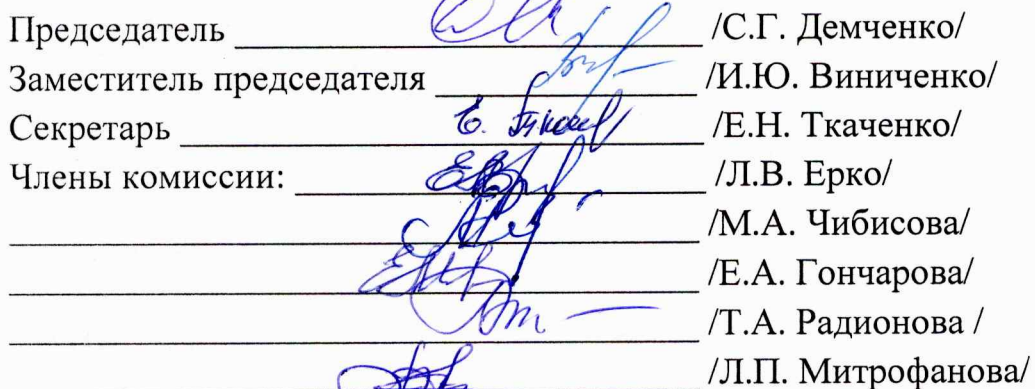 Председатель /С.Г. Демченко/
Заместитель председателя /И.Ю. Виниченко/
Секретарь /Е.Н. Ткаченко/
Члены комиссии: /Л.В. Ерко/
/М.А. Чибисова/
/Е.А. Гончарова/
/Т.А. Радионова /
/Л.П. Митрофанова/